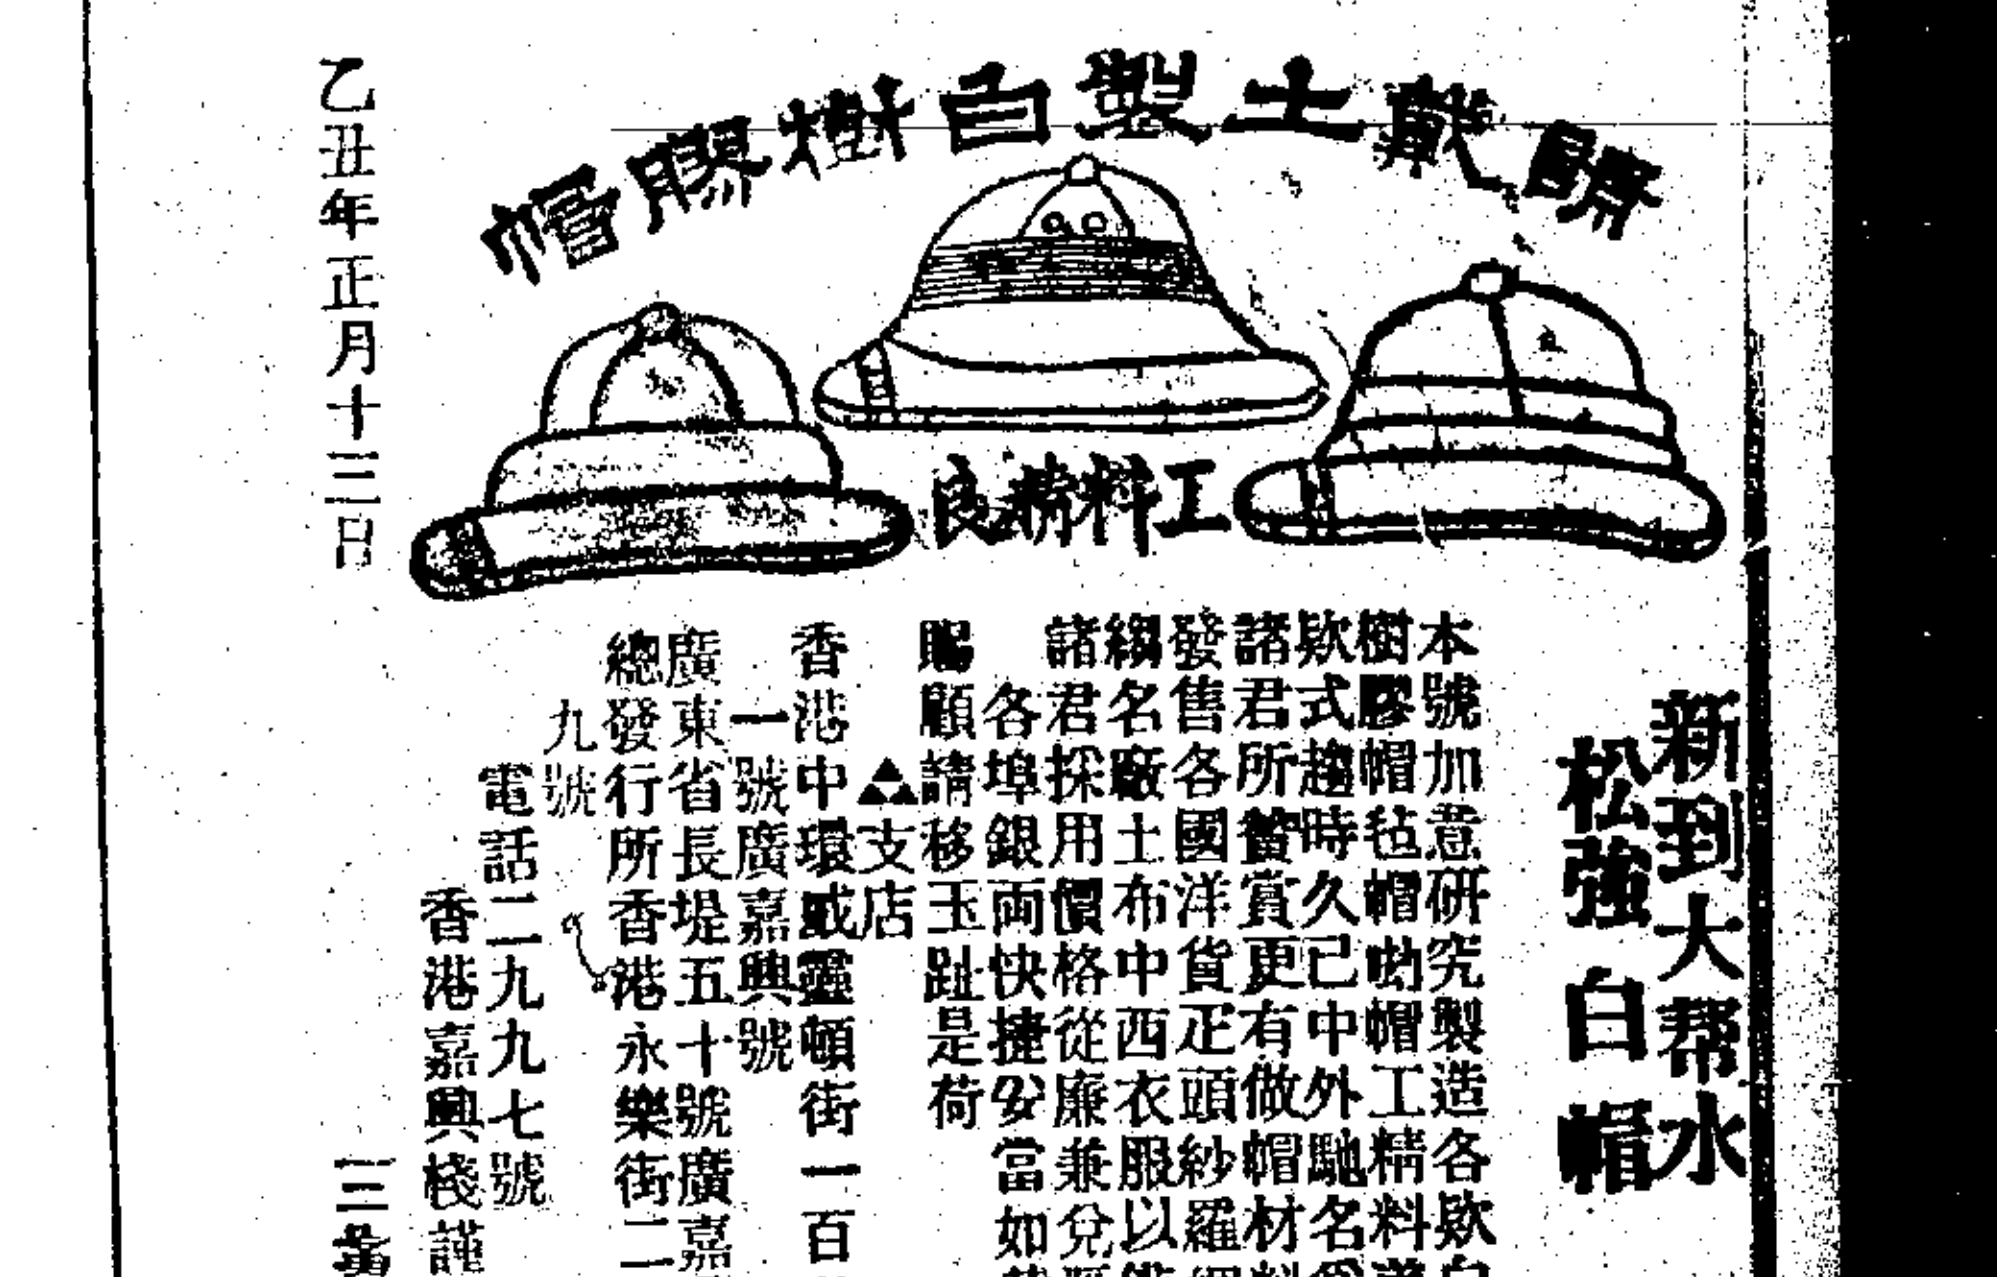 請戴土製白樹膠帽
工料精良
新到大帮水
松強白帽
本號加意研究製造各欵白
樹膠帽毡帽㘭帽工精料
欵式趨時久已中外馳名
諸君所贊賞更有做帽材料
發售各國洋貨疋頭紗羅綢
縐名廠土布中西衣服以
諸君採用價格從廉兼兌
各埠銀両快捷妥當如
賜顧請移玉趾是荷
支店
香港中環威靈頓街一百
一號廣嘉興號
廣東省長堤五十號廣嘉
總發行所香港永樂街二
九號
電話二九九七號
香港嘉興棧謹
乙丑年正月十三日